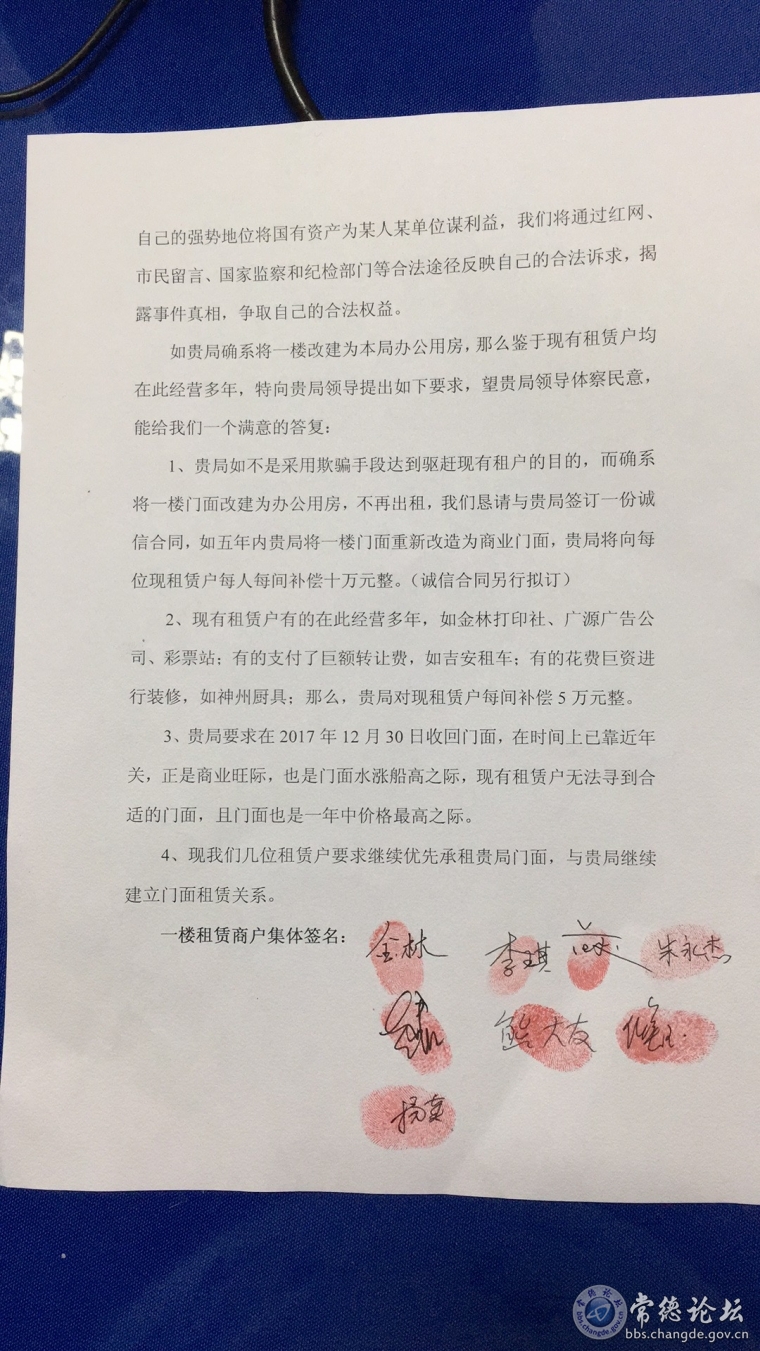 自己的强势地位将国有资产为某人某单位谋利益，我们将通过红网、
市民留言、国家监察和纪检部门等合法途径反映自己的合法诉求，揭
露事件真相，争取自己的合法权益。
如贵局确系将一楼改建为本局办公用房，那么鉴于现有租赁户均
在此经营多年，特向贵局领导提出如下要求，望贵局领导体察民意，
能给我们一个满意的答复：
1、贵局如不是采用欺骗手段达到驱赶现有租户的目的，而确系
将一楼门面改建为办公用房，不再出租，我们恳请与贵局签订一份诚
信合同，如五年内贵局将一楼门面重新改造为商业门面，贵局将向每
位现租赁户每人每间补偿十万元整。（诚信合同另行拟订）
2、现有租赁户有的在此经营多年，如金林打印社、广源广告公
司、彩票站；有的支付了巨额转让费，如吉安租车；有的花费巨资进
行装修，如神州厨具；那么，贵局对现租赁户每间补偿 5 万元整。
3、贵局要求在 2017 年 12 月 30 日收回门面，在时间上已靠近年
关，正是商业旺际，也是门面水涨船高之际，现有租赁户无法寻到合
适的门面，且门面也是一年中价格最高之际。
4、现我们几位租赁户要求继续优先承租贵局门面，与贵局继续
建立门面租赁关系。
一楼租赁商户集体签名：
金林 李琪 朱永杰
熊大友
常德论坛
bbs.changde.gov.cn